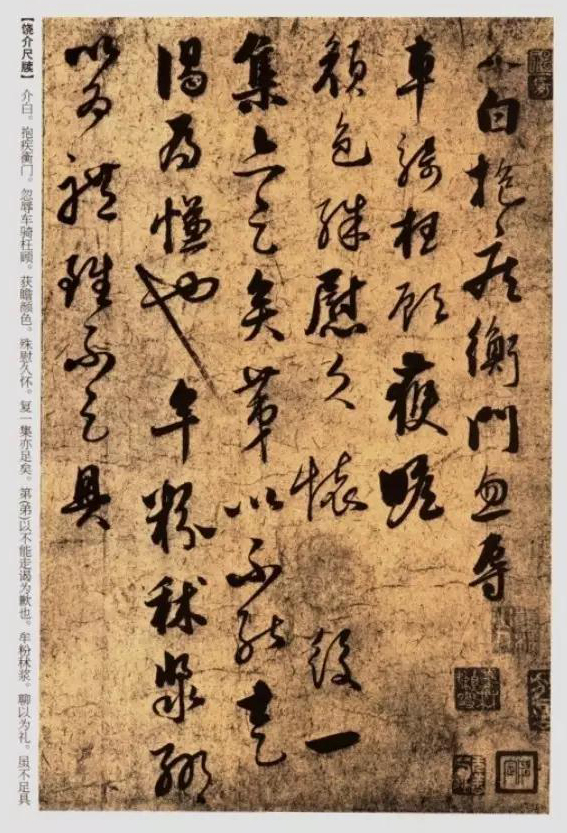 介白抱疾衡門忽辱
車騎枉顧獲瞻
顏色殊慰久懷復一
集亦足矣第以不能走
謁為慊也牟粉秫漿聊
以為禮雖不足具
【饶介尺牍】 介白。抱疾衡门。忽辱车骑枉顾。获瞻颜色。殊慰久怀。复一集亦足矣。第(弟)以不能走谒为歉也。牟粉秫浆。聊以为礼。虽不足具